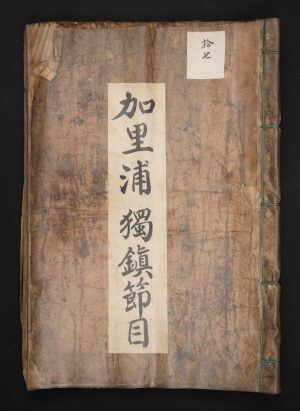 拾七
加里浦獨鎭節目